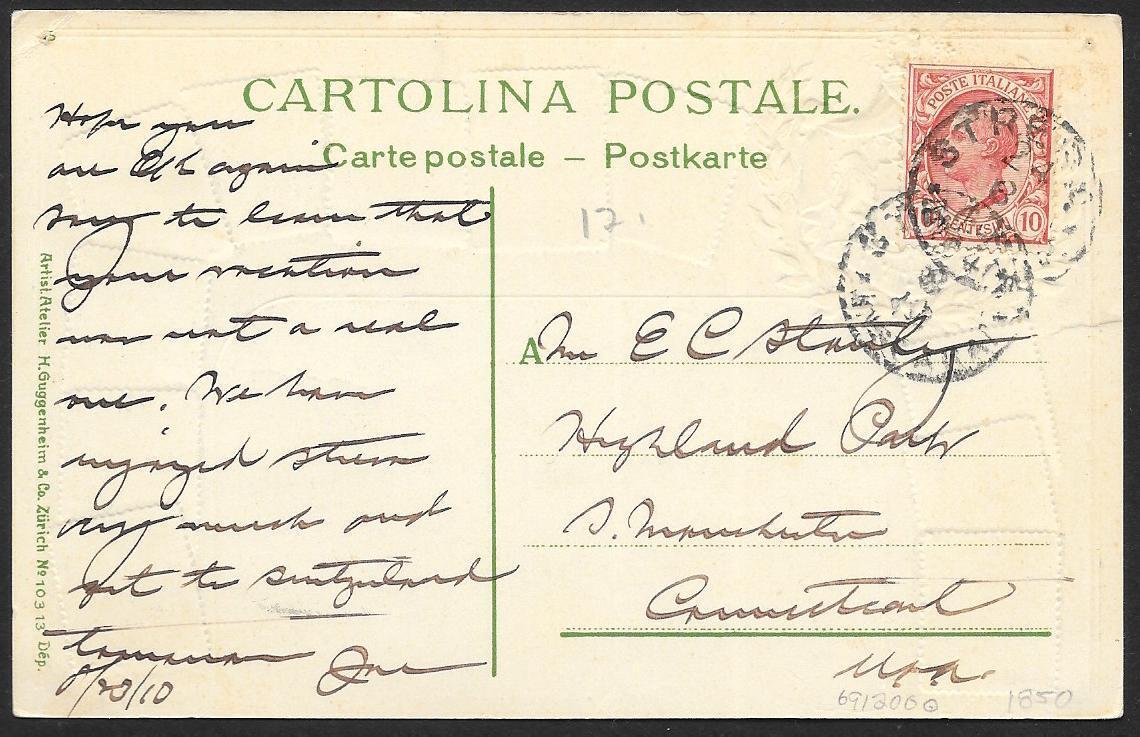 CARTOLINA POSTALE.
Carte postale – Postkarte
POSTE ITALIANE
CENTESIMI 10
17.
Hope you
are O/K again
sorry to learn that
your vacation
was not a real
one. We have
enjoyed Stresa
very much and
get to Switzerland
tomorrow Joe
8/20/10
A Mr E C Stanley
Highland Park
S. Manchester
Connecticut
U.S.A.
6912000
1850
Artist. Atelier H. Guggenheim & Co. Zürich No 10313 Dép.